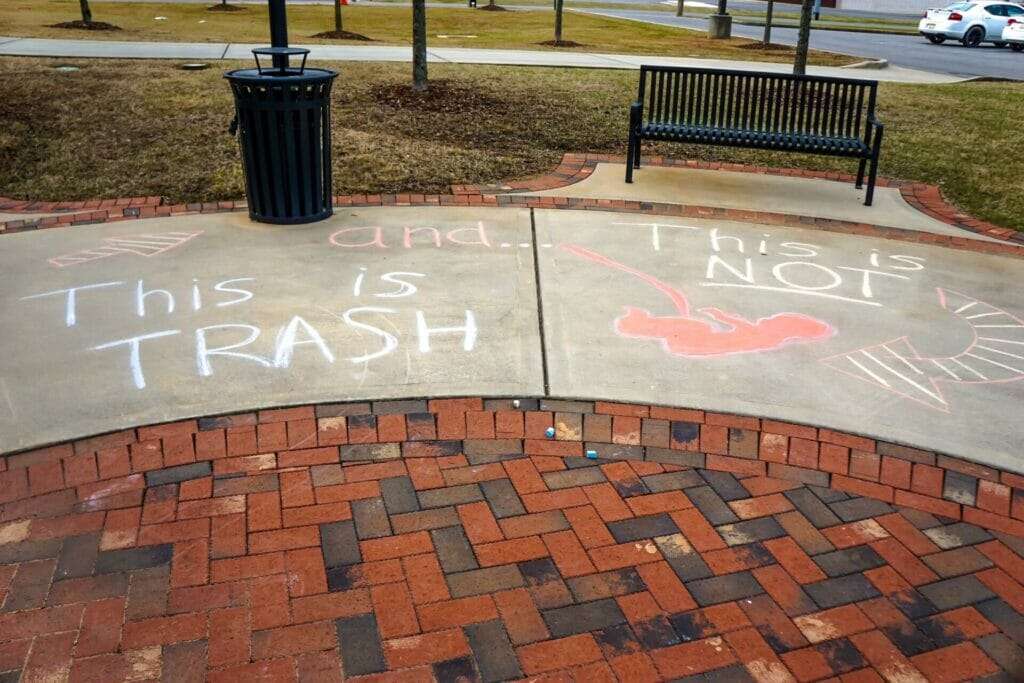 This is
TRASH
and...
This is
NOT